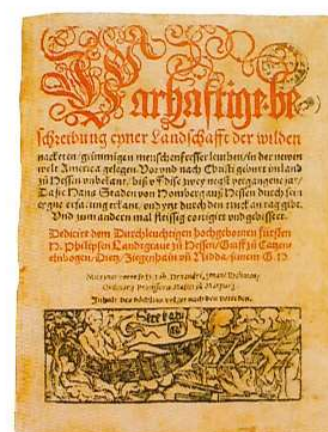 Warhaftige be
schreibung eyner Landschafft der wilden
nacketen/grimmigen menschenfresser leuthen/in der newen
welt America gelegen/Vor vnd nach Christi geburt im land
zů Hessen vnbekant/biß vff dise zwey nechst vergangene jar/
Da sie Hans Staden von Homberg auß Hessen durch sein
eygne erfarung erkant/vnd yetzt durch den truck an tag gibt.
Vnd zum andern mal fleissig corrigirt vnd gebessert.
Dedicirt dem Durchleuchtigen hochgebornen fürsten
H. Philipsen Landtgraue zů Hessen/Graff zů Catzen
elnbogen/Dietz/Ziegenhain vñ Nidda/seinem G. H.
Mit eyner vorrede D. Joh. Dryandri, genant Eychman/
Ordinarij Professoris Medici zů Marpurg.
Inhalt des büchlins volget nach den vorreden.